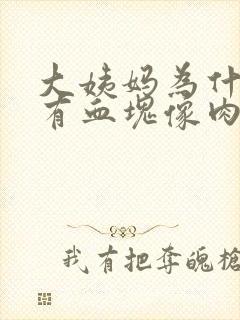 大姨妈为什
有血塊像肉
我有把奪魄槍